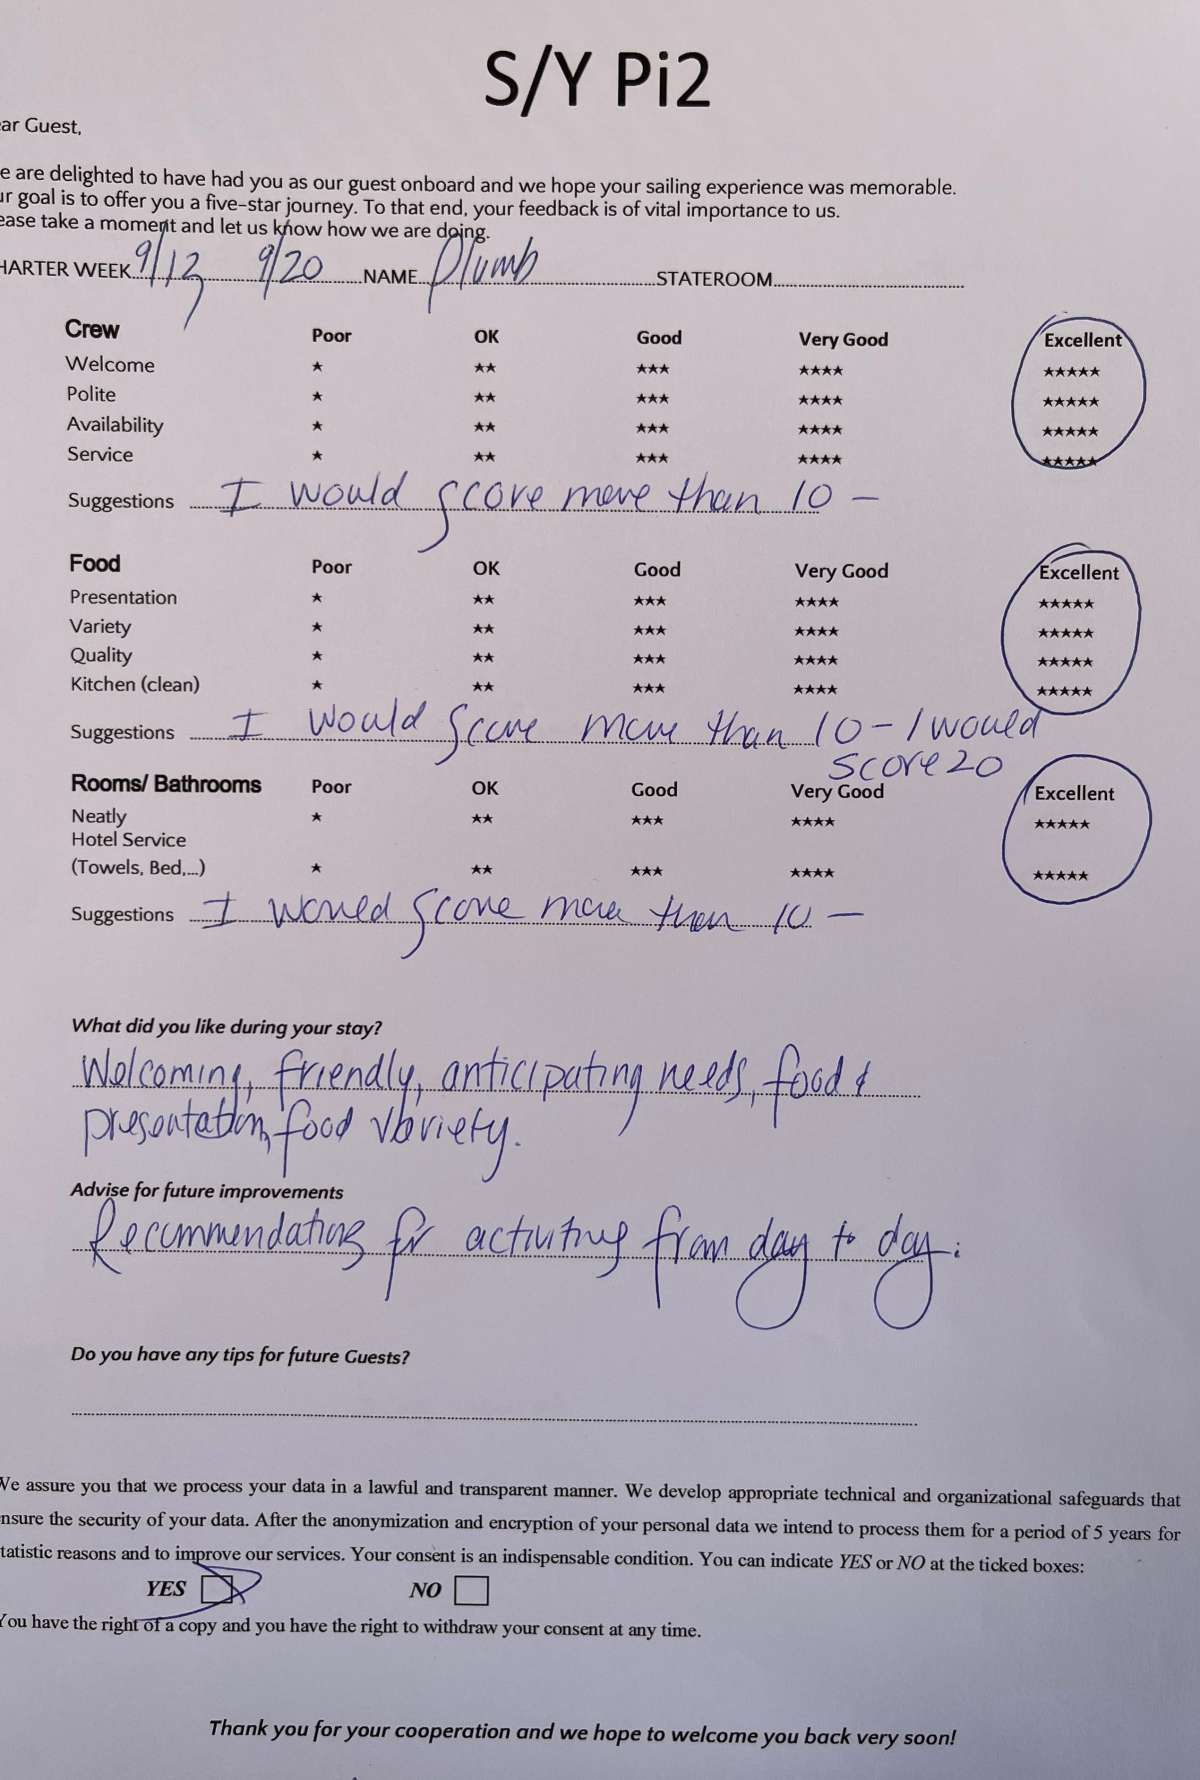 S/Y Pi2
ar Guest,
e are delighted to have had you as our guest onboard and we hope your sailing experience was memorable.
ur goal is to offer you a five-star journey. To that end, your feedback is of vital importance to us.
ease take a moment and let us know how we are doing.
HARTER WEEK 9/13 9/20 NAME Plumb STATEROOM
Crew Poor OK Good Very Good Excellent
Welcome ★ ★★ ★★★ ★★★★ ★★★★★
Polite ★ ★★ ★★★ ★★★★ ★★★★★
Availability ★ ★★ ★★★ ★★★★ ★★★★★
Service ★ ★★ ★★★ ★★★★ ★★★★★
Suggestions I would score more than 10 –
Food Poor OK Good Very Good Excellent
Presentation ★ ★★ ★★★ ★★★★ ★★★★★
Variety ★ ★★ ★★★ ★★★★ ★★★★★
Quality ★ ★★ ★★★ ★★★★ ★★★★★
Kitchen (clean) ★ ★★ ★★★ ★★★★ ★★★★★
Suggestions I would score more than 10 – I would
score 20
Rooms/ Bathrooms Poor OK Good Very Good Excellent
Neatly ★ ★★ ★★★ ★★★★ ★★★★★
Hotel Service
(Towels, Bed,...) ★ ★★ ★★★ ★★★★ ★★★★★
Suggestions I would score more than 10 –
What did you like during your stay?
Welcoming, friendly, anticipating needs, food &
presentation, food variety.
Advise for future improvements
Recommendations for activities from day to day.
Do you have any tips for future Guests?
We assure you that we process your data in a lawful and transparent manner. We develop appropriate technical and organizational safeguards that
nsure the security of your data. After the anonymization and encryption of your personal data we intend to process them for a period of 5 years for
tatistic reasons and to improve our services. Your consent is an indispensable condition. You can indicate YES or NO at the ticked boxes:
YES NO
You have the right of a copy and you have the right to withdraw your consent at any time.
Thank you for your cooperation and we hope to welcome you back very soon!